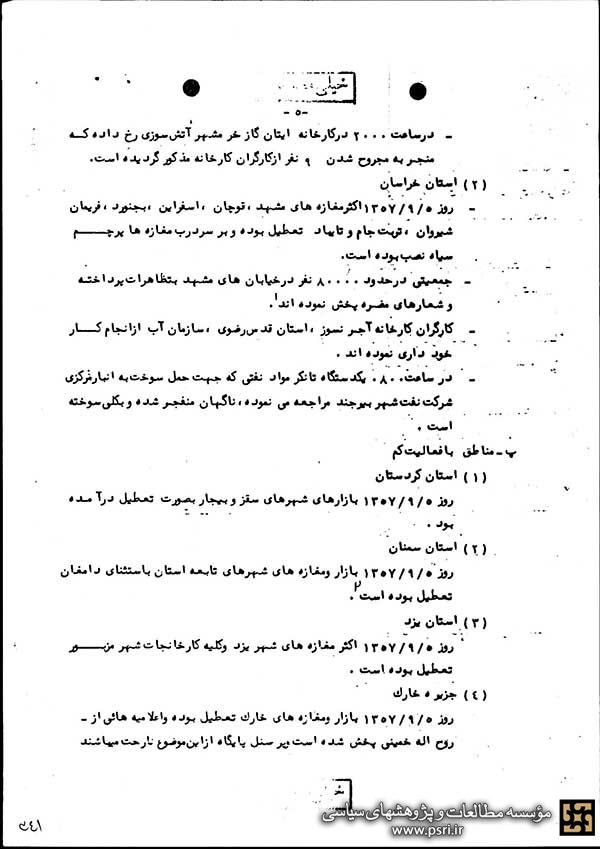 خیلی
-۵-
- درساعت ۲۰۰۰ درکارخانه ایتان گاز خرمشهر آتش سوزی رخ داده که
منجر به مجروح شدن ۹ نفر ازکارگران کارخانه مذکور گردیده است.
(۲) استان خراسان
- روز ۱۳۵۷/۹/۵ اکثرمغازه های مشهد ، قوچان ، اسفراین ، بجنورد ، فریمان
شیروان ، تربت جام و تایباد تعطیل بوده و بر سردرب مغازه ها پرچم
سیاه نصب بوده است.
- جمعیتی درحدود ۸۰۰۰۰ نفر درخیابان های مشهد بتظاهرات پرداخته
و شعارهای مضره پخش نموده اند۱.
- کارگران کارخانه آجر نسوز ، استان قدس رضوی ، سازمان آب ازانجام کار
خود داری نموده اند .
- در ساعت ۰۸۰۰ یکدستگاه تانکر مواد نفتی که جهت حمل سوخت به انبارمرکزی
شرکت نفت شهر بیرجند مراجعه می نموده ، ناگهان منفجر شده و بکلی سوخته
است .
پ - مناطق بافعالیت کم
(۱) استان کردستان
روز ۱۳۵۷/۹/۵ بازارهای شهرهای سقز و بیجار بصورت تعطیل درآمده
بود .
(۲) استان سمنان
روز ۱۳۵۷/۹/۵ بازار ومغازه های شهرهای تابعه استان باستثنای دامغان
تعطیل بوده است۲.
(۳) استان یزد
روز ۱۳۵۷/۹/۵ اکثر مغازه های شهر یزد وکلیه کارخانجات شهر مزبور
تعطیل بوده است .
(۴) جزیره خارك
روز ۱۳۵۷/۹/۵ بازار ومغازه های خارك تعطیل بوده واعلامیه هائی از -
روح اله خمینی پخش شده است وپرسنل پایگاه ازاین موضوع نارحت میباشند
مؤسسه مطالعات و پژوهشهای سیاسی
www.psri.ir